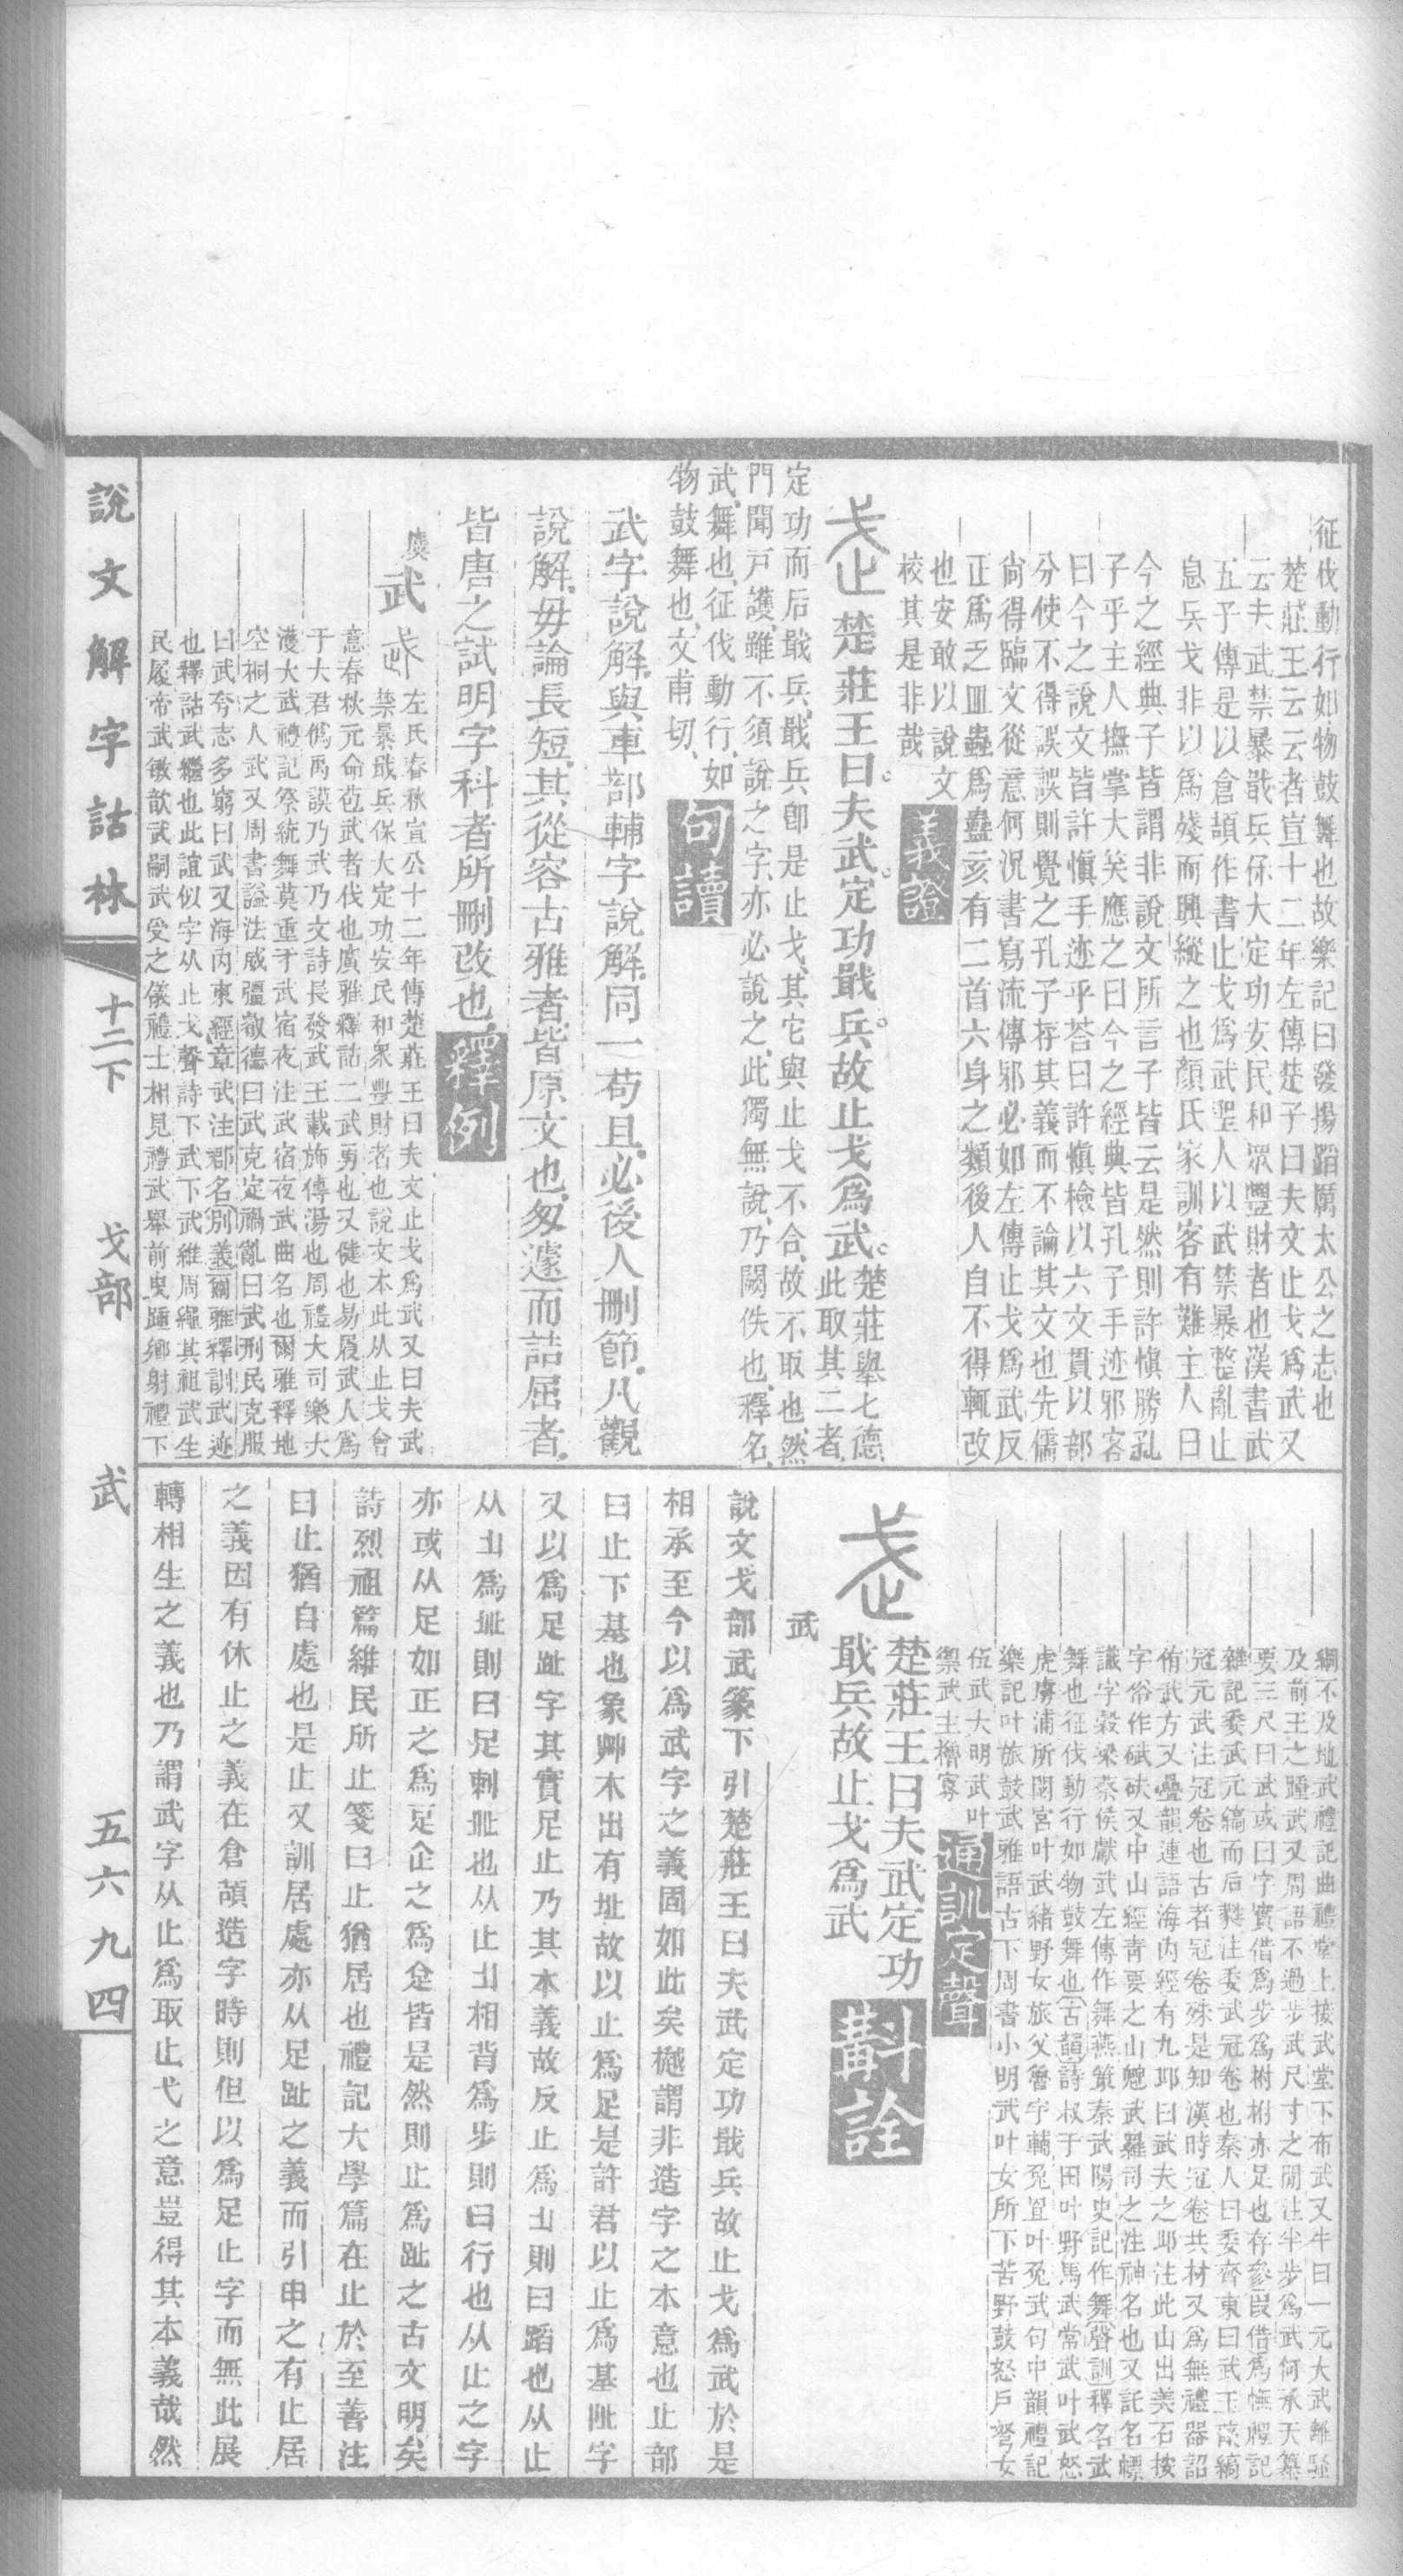 征伐動行如物鼓舞也故樂記曰發揚蹈厲太公之志也
楚莊王云云者宣十二年左傳楚子曰夫文止戈爲武又
云夫武禁暴戢兵保大定功安民和眾豐財者也漢書武
五子傳是以倉頡作書止戈爲武聖人以武禁暴整亂止
息兵戈非以爲殘而興縱之也顏氏家訓客有難主人曰
今之經典子皆謂非說文所言子皆云是然則許愼勝孔
子乎主人撫掌大笑應之曰今之經典皆孔子手迹邪客
曰今之說文皆許愼手迹乎荅曰許愼檢以六文貫以部
分使不得誤誤則覺之孔子存其義而不論其文也先儒
尙得臨文從意何況書寫流傳邪必如左傳止戈爲武反
正爲乏皿蟲爲蠱亥有二首六身之類後人自不得輒改
也安敢以說文
校其是非哉
義證
楚莊王曰夫武定功戢兵故止戈爲武楚莊舉七德
此取其二者
定功而后戢兵戢兵卽是止戈其它與止戈不合故不取也然
門聞戸護雖不須說之字亦必說之此獨無說乃闕佚也釋名
武舞也征伐動行如
物鼓舞也文甫切
句讀
武字說解與車部輔字說解同一苟且必後人刪節凡觀
說解毋論長短其從容古雅者皆原文也匆遽而詰屈者
皆唐之試明字科者所刪改也釋例
武
左氏春秋宣公十二年傳楚莊王曰夫文止戈爲武又曰夫武
禁暴戢兵保大定功安民和眾豐財者也說文本此从止戈會
意春秋元命苞武者伐也廣雅釋詁二武勇也又健也易履武人爲
于大君僞禹謨乃武乃文詩長發武王載旆傳湯也周禮大司樂大
濩大武禮記祭統舞莫重于武宿夜注武宿夜武曲名也爾雅釋地
空桐之人武又周書諡法威彊敵德曰武克定禍亂曰武刑民克服
曰武夸志多窮曰武又海內東經章武注郡名別義爾雅釋訓武迹
也釋詁武繼也此誼似字从止戈聲詩下武下武維周繩其祖武生
民履帝武敏歆武嗣武受之儀禮士相見禮武舉前曳踵鄉射禮下
綱不及地武禮記曲禮堂上接武堂下布武又牛曰一元大武離騷
及前王之踵武又周語不過步武尺寸之閒注半步爲武何承天纂
要三尺曰武或曰字實借爲步爲柎柎亦足也存參叚借爲憮禮記
雜記委武元縞而后蕤注委武冠卷也秦人曰委齊東曰武玉藻縞
冠元武注冠卷也古者冠卷殊是知漢時冠卷共材又爲無禮器詔
侑武方又疊韻連語海內經有九邱曰武夫之邱注此山出美石按
字俗作碔砆又中山經靑要之山䰠武羅司之注神名也又託名幖
識字穀梁蔡侯獻武左傳作舞燕策秦武陽史記作舞聲訓釋名武
舞也征伐動行如物鼓舞也古韻詩叔于田叶野馬武常武叶武怒
虎虜浦所閟宮叶武緒野女旅父魯宇輔兔罝叶兔武句中韻禮記
樂記叶旅鼓武雅語古下周書小明武叶女所下苦野鼓怒戸弩女
伍武大明武叶
禦武主櫓寡
通訓定聲
楚莊王曰夫武定功
戢兵故止戈爲武
斠詮
武
說文戈部武篆下引楚莊王曰夫武定功戢兵故止戈爲武於是
相承至今以爲武字之義固如此矣樾謂非造字之本意也止部
曰止下基也象艸木出有址故以止爲足是許君以止爲基阯字
又以爲足趾字其實足止乃其本義故反止爲㞢則曰蹈也从止
从㞢爲癶則曰足剌癶也从止㞢相背爲步則曰行也从止之字
亦或从足如正之爲𤴓企之爲𠈮皆是然則止爲趾之古文明矣
詩烈祖篇維民所止箋曰止猶居也禮記大學篇在止於至善注
曰止猶自處也是止又訓居處亦从足趾之義而引申之有止居
之義因有休止之義在倉頡造字時則但以爲足止字而無此展
轉相生之義也乃謂武字从止爲取止弋之意豈得其本義哉然
說文解字詁林
十二下
戈部
武
五六九四